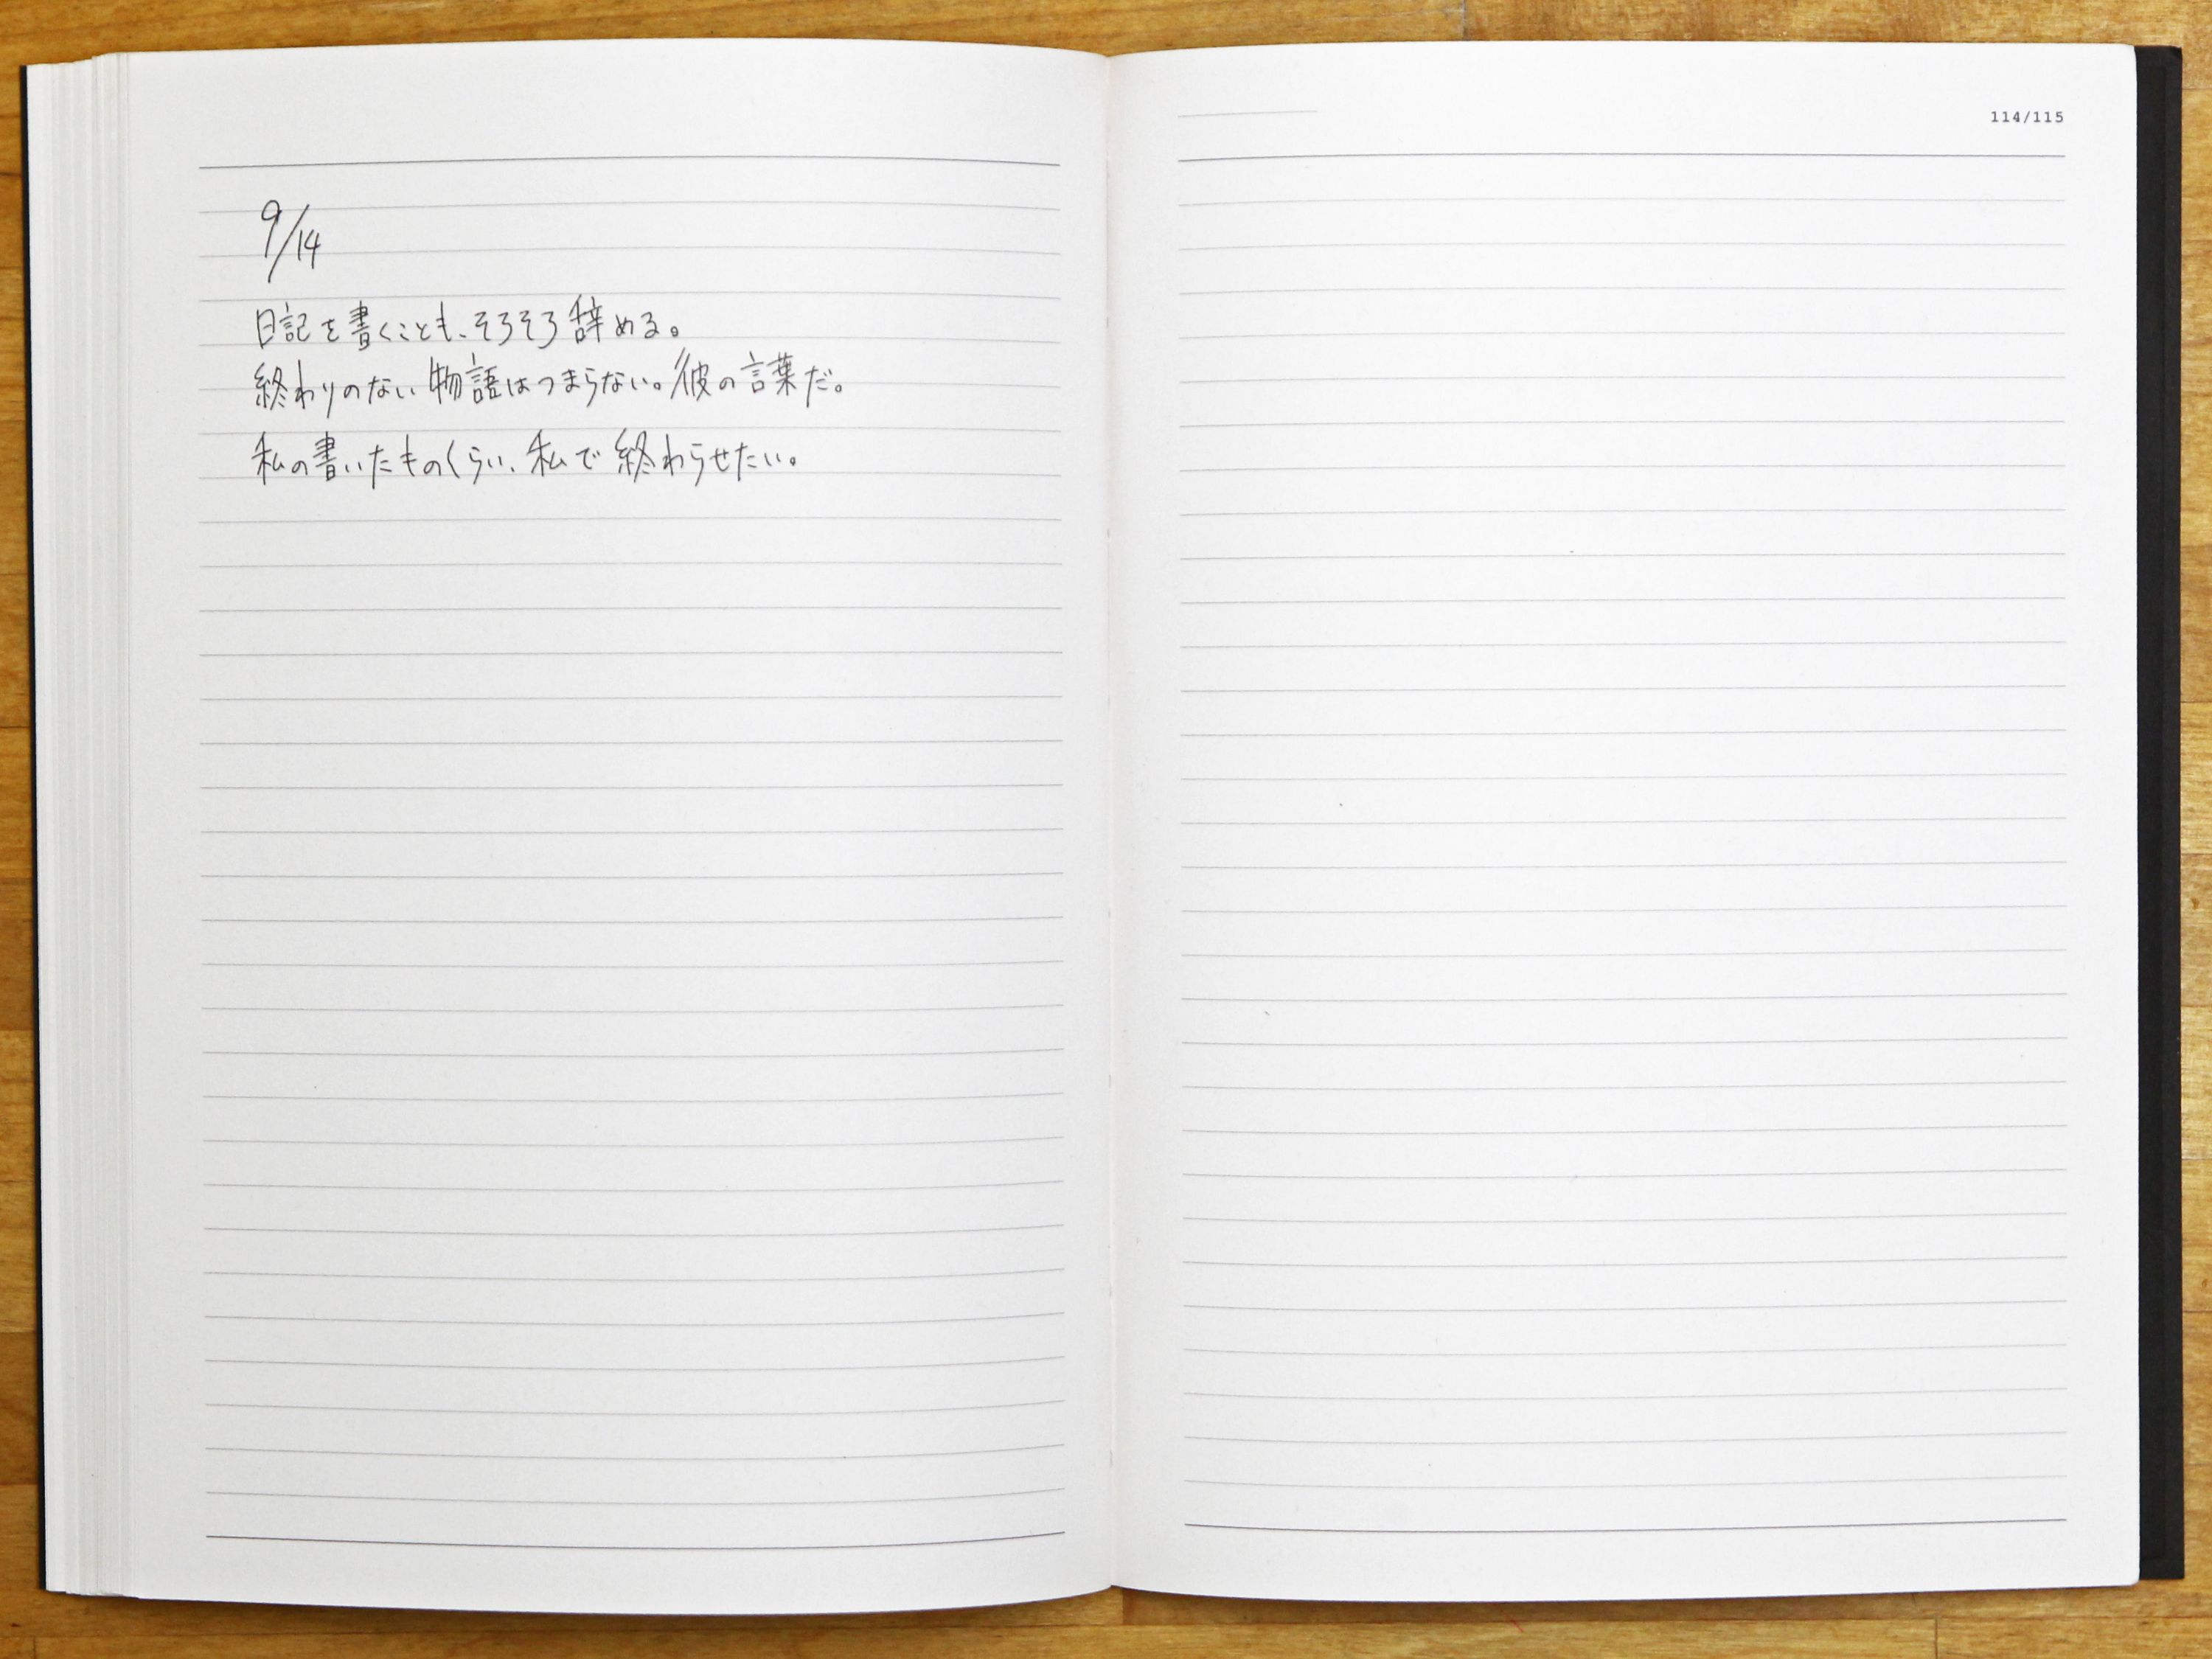 9/14
日記を書くことも、そろそろ辞める。
終わりのない物語はつまらない。彼の言葉だ。
私の書いたものくらい、私で終わらせたい。
114/115